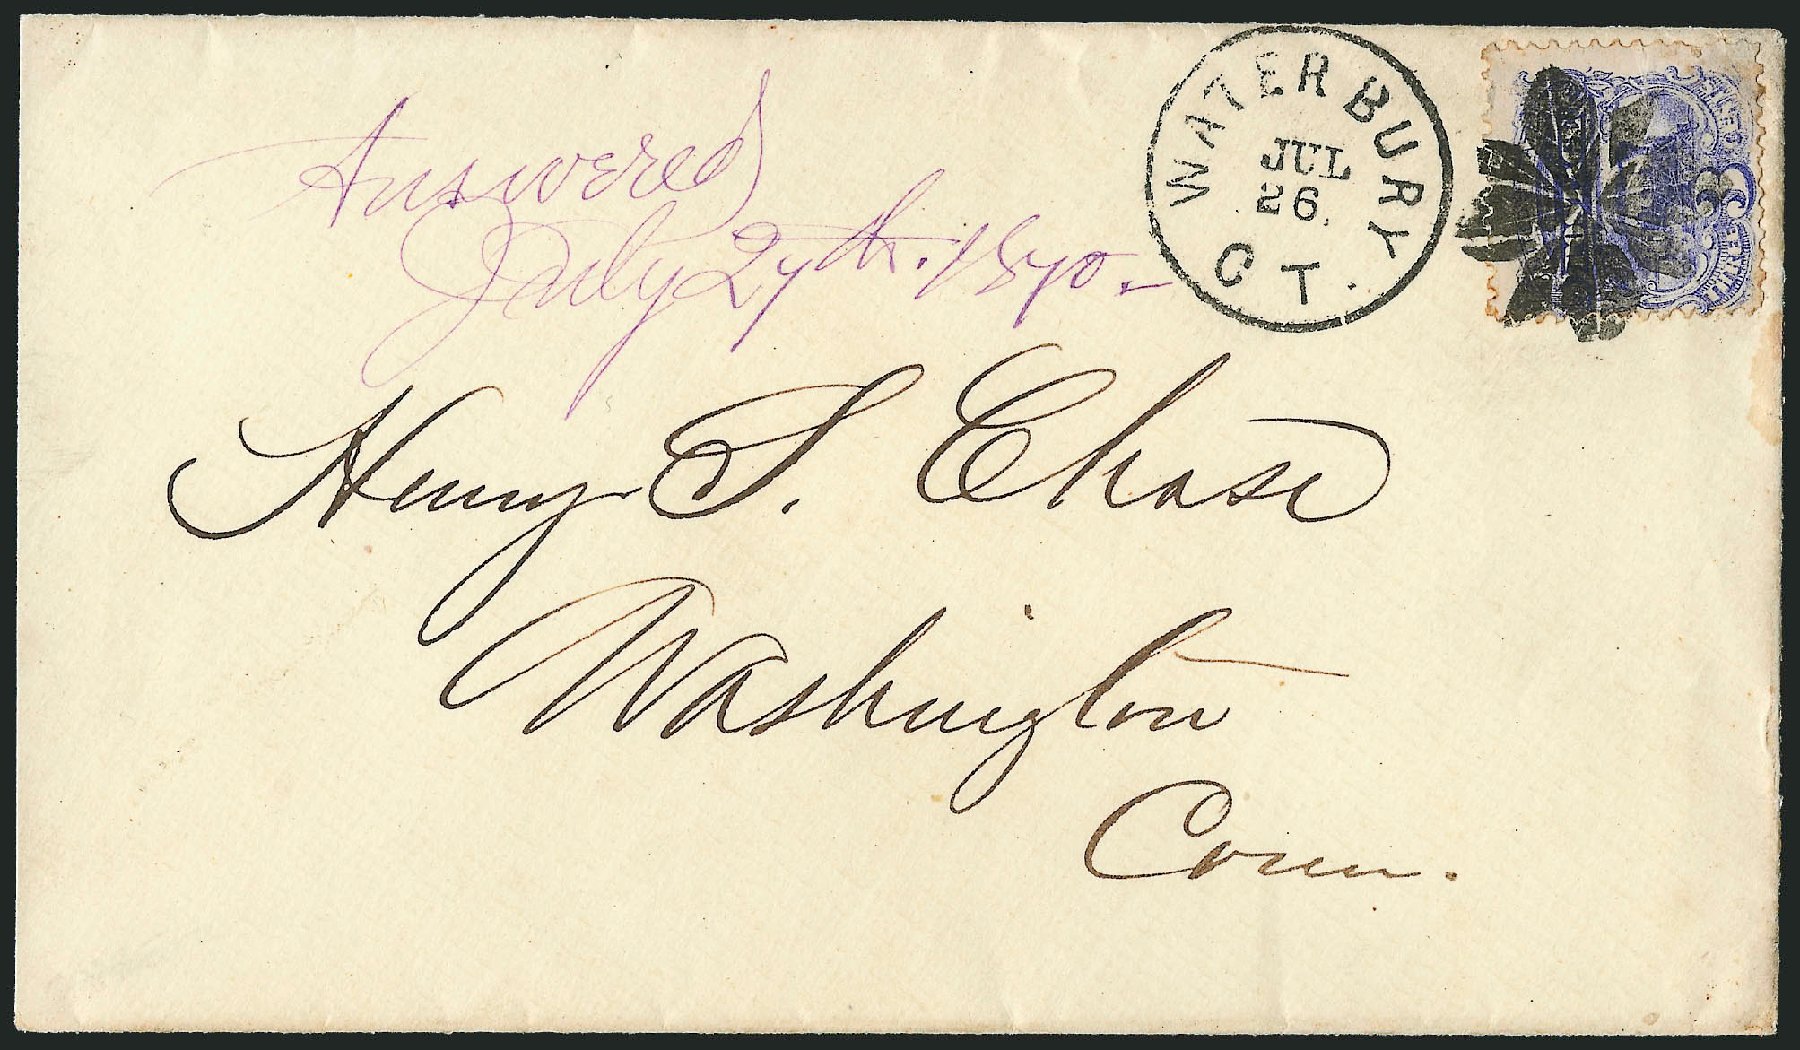 Answered
July 27th. 1870.
WATERBURY
JUL
26.
CT.
3
THREE
Henry S. Chase
Washington
Conn.